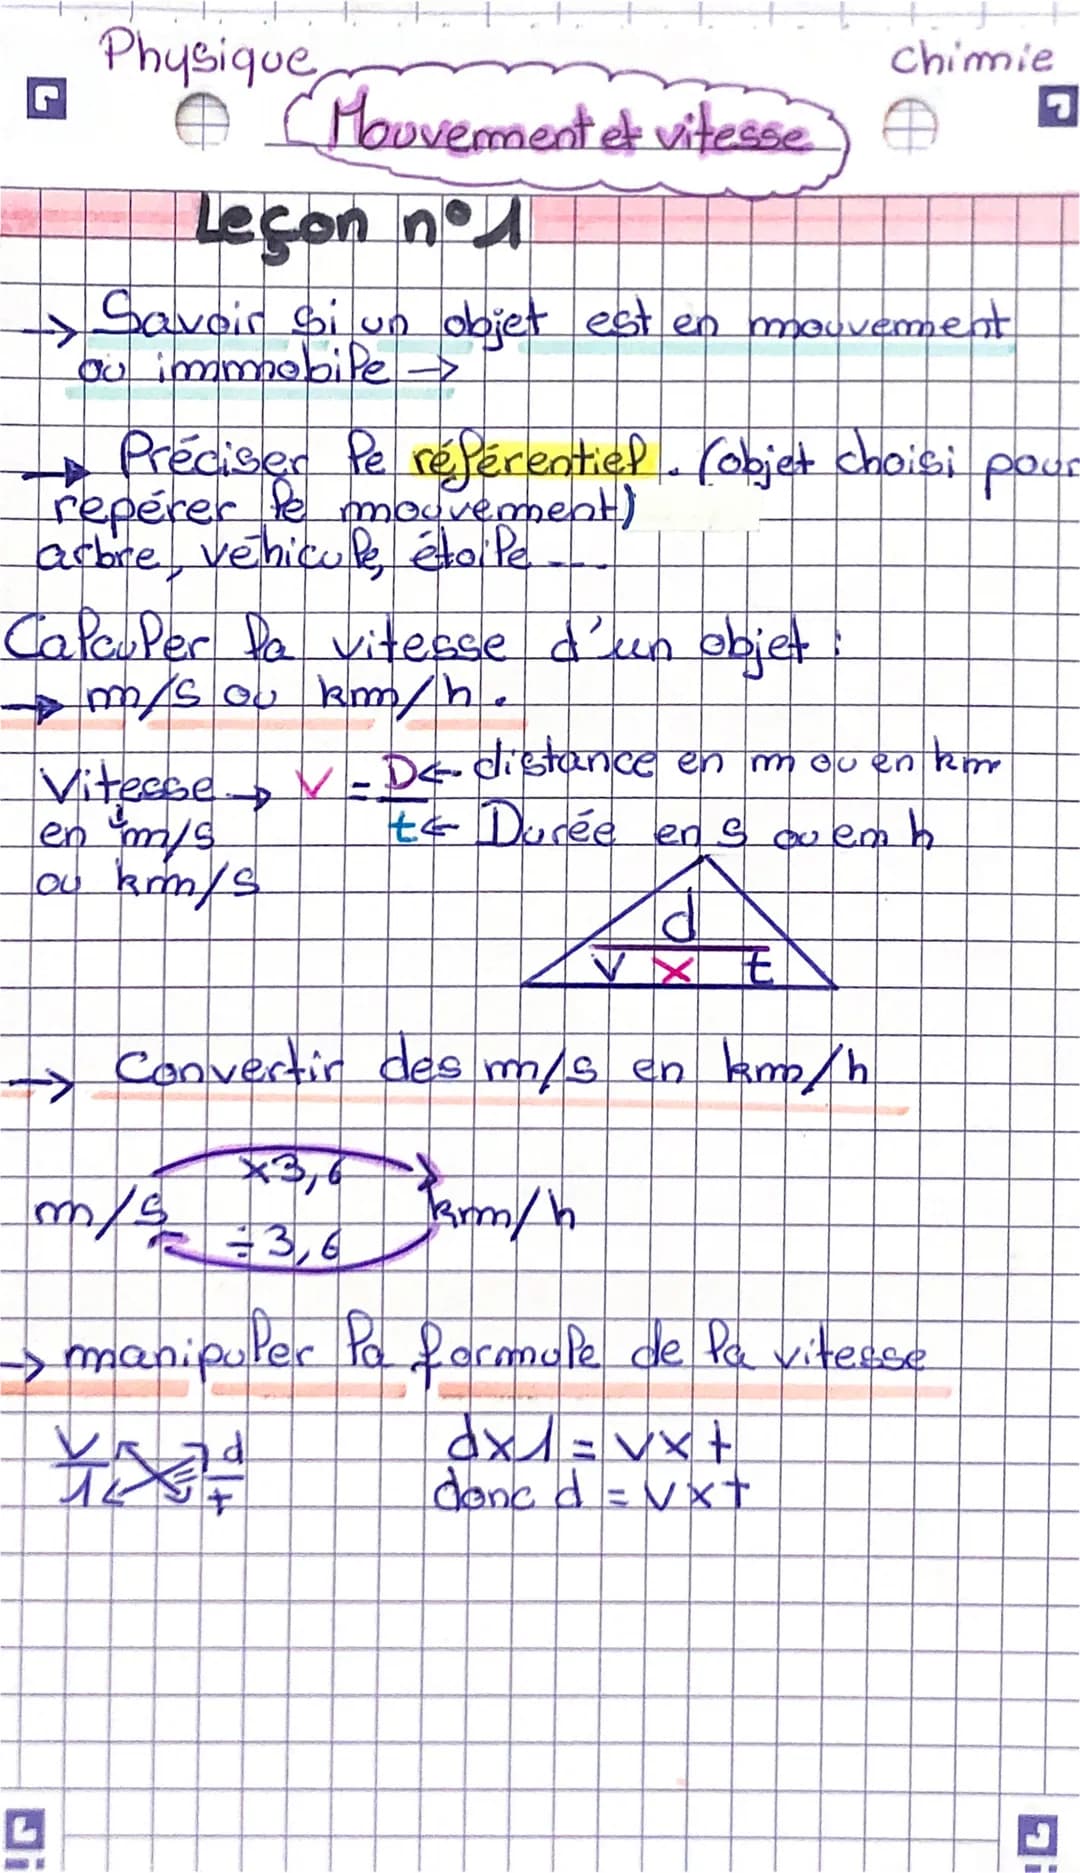 Physique
Chimie
Mouvement et vitesse
Leçon n°1
→ Savoir si un objet est en mouvement
ou immobile →
→ Préciser le référentiel. (objet choisi pour
repérer le mouvement)
arbre, véhicule, étoile ...
Calculer la vitesse d'un objet :
→ m/s ou km/h.
Vitesse → V = D ← distance en m ou en km
en m/s t ← Durée en s ou em h
ou km/s
d
v × t
→ Convertir des m/s en km/h
×3,6
m/s km/h
÷3,6
→ manipuler la formule de la vitesse
v d dx1 = vxt
1 t donc d = vxt